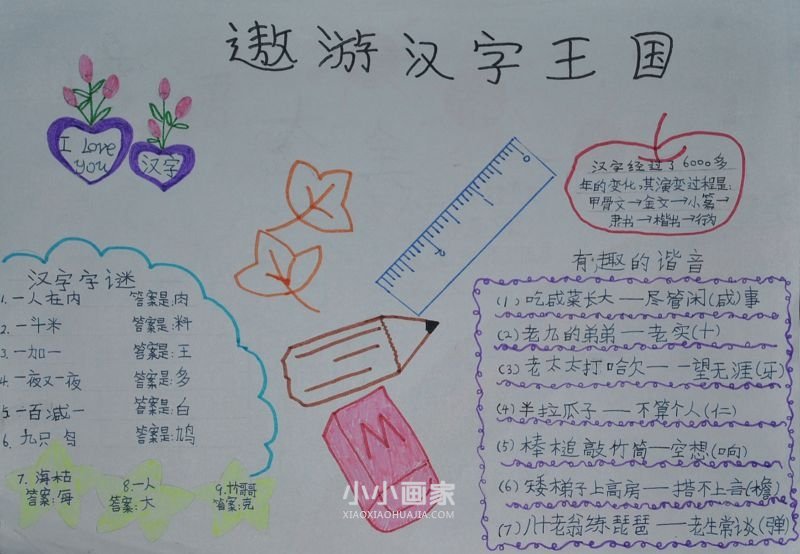 遨游汉字王国
I love
you
汉字
汉字经过了6000多
年的变化,其演变过程是:
甲骨文→金文→小篆→
隶书→楷书→行书
汉字字谜
1.一人在内 答案是:肉
2.一斗米 答案是:料
3.一加一 答案是:王
4.一夜又一夜 答案是:多
5.一百减一 答案是:白
6.九只鸟 答案是:鸠
7.海枯
答案:每
8.一人
答案:大
9.竹哥哥
答案:克
0
M
有趣的谐音
(1)吃咸菜长大——尽管闲(咸)事
(2)老九的弟弟——老实(十)
(3)老太太打哈欠——一望无涯(牙)
(4)半拉瓜子——不算个人(仁)
(5)棒槌敲竹筒—空想(响)
(6)矮梯子上高房——搭不上言(檐)
(7)八十老翁练琵琶——老生常谈(弹)
小小画家
XIAOXIAOHUAJIA.COM